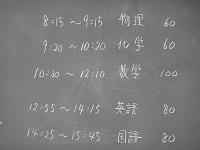 8:15 ～ 9:15 物理 60
9:20 ～ 10:20 化学 60
10:30 ～ 12:10 数学 100
12:55 ～ 14:15 英語 80
14:25 ～ 15:45 国語 80